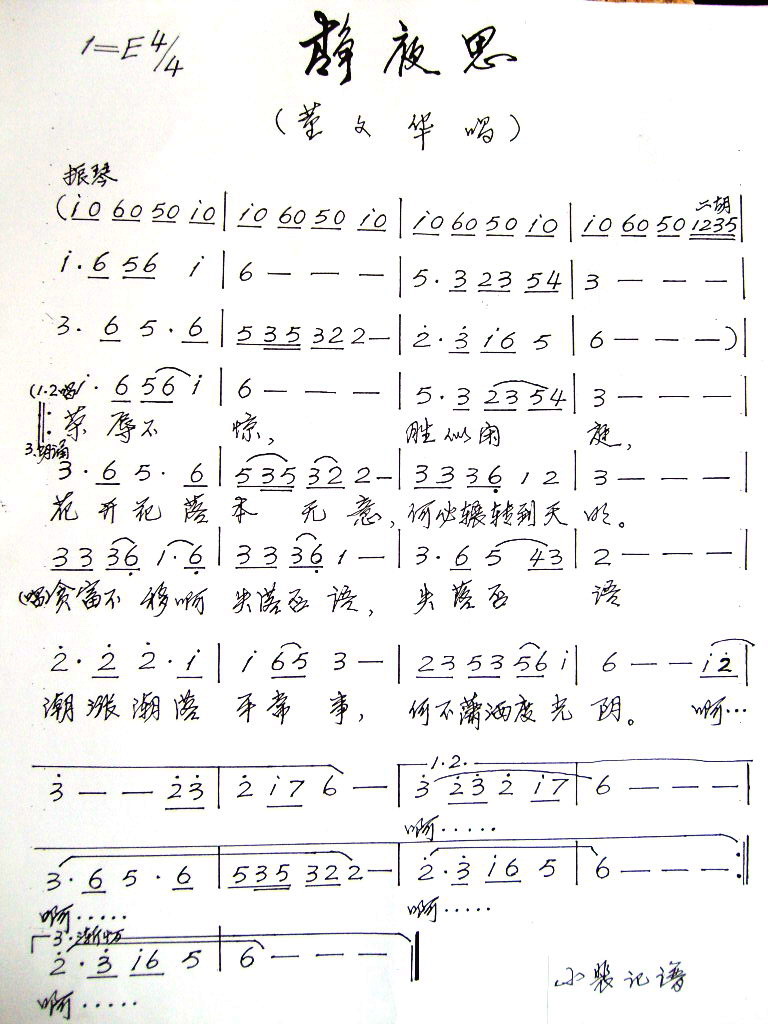 1=E 4/4
静夜思
(董文华唱)
振琴
二胡
(i0 60 50 i0 | i0 60 50 i0 | i0 60 50 i0 | i0 60 50 1235 |
i·6 56 i | 6 — — — | 5·3 23 54 | 3 — — — |
3·6 5·6 | 535 322— | 2·3 i6 5 | 6 — — —)
(1.2.唱 i·6 56 i | 6 — — — | 5·3 23 54 | 3 — — — |
荣辱不 惊, 胜似闲 庭,
3.胡诵
3·6 5·6 | 535 322— | 33 36 1 2 | 3 — — — |
花开花落本 无意,何必辗转到天明。
33 36 1·6 | 33 36 1— | 3·6 5 43 | 2 — — — |
(唱)贫富不移啊 失落不语, 失落不 语
2·2 2·i | i 65 3— | 23 53 56 i | 6 — — i2 |
潮涨潮落 平常事, 何不潇洒度光阴。 啊…
1.2.
3 — — 23 | 2 i7 6— | 3 23 2 i7 | 6 — — — |
啊·····
3·6 5·6 | 535 322— | 2·3 i6 5 | 6 — — — :||
啊····· 啊·····
3.渐慢
2·3 i6 5 | 6 — — — ||
啊·····
小裴记谱